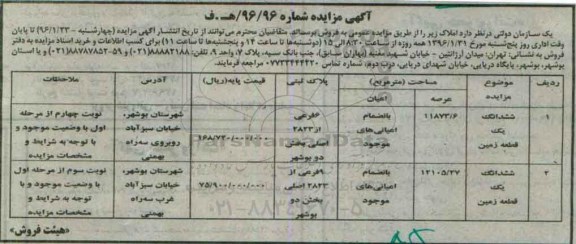 آگهی مزایده شماره ۹۶/۹۶/هـ.ف
یک سازمان دولتی در نظر دارد املاک زیر را از طریق مزایده عمومی به فروش برساند. متقاضیان محترم می‌توانند از تاریخ انتشار آگهی مزایده (چهارشنبه - ۹۶/۱/۲۳) تا پایان
وقت اداری روز پنجشنبه مورخ ۱۳۹۶/۱/۳۱ همه روزه از ساعت ۸:۳۰ الی ۱۵ (دوشنبه‌ها تا ساعت ۱۲ و پنجشنبه‌ها تا ساعت ۱۱) برای کسب اطلاعات و خرید اسناد مزایده به دفتر
فروش به نشانی: تهران: میدان آرژانتین - خیابان شهید (بهاران سابق)، جنب بانک سپه، پلاک ۷، واحد ۹، تلفن: ۸۸۸۸۲۱۸۸ (۰۲۱) و ۸۸۷۸۷۸۵۲-۵۹ (۰۲۱) و یا استان
بوشهر، بوشهر، پایگاه دریایی، خیابان شهدای دریایی، درب دوم، شماره تماس ۰۷۷۳۳۴۴۴۴۲۰ مراجعه فرمایند.
ردیف موضوع مزایده مساحت (مترمربع) عرصه اعیان پلاک ثبتی قیمت پایه (ریال) آدرس ملاحظات
۱ ششدانگ یک قطعه زمین ۱۱۸۷۳/۶ بانضمام اعیانی‌های موجود ۶فرعی از ۲۸۲۳ اصلی بخش دو بوشهر ۱۶۸/۷۳۰/۰۰۰/۰۰۰ شهرستان بوشهر، خیابان سبزآباد روبروی سه‌راه بهمنی نوبت چهارم از مرحله اول با وضعیت موجود و با توجه به شرایط و مشخصات مزایده
۲ ششدانگ یک قطعه زمین ۱۲۱۰۵/۲۷ بانضمام اعیانی‌های موجود ۹فرعی از ۲۸۲۳ اصلی بخش دو بوشهر ۷۵/۹۰۰/۰۰۰/۰۰۰ شهرستان بوشهر، خیابان سبزآباد غرب سه‌راه بهمنی نوبت سوم از مرحله اول با وضعیت موجود و با توجه به شرایط و مشخصات مزایده
«هیئت فروش»